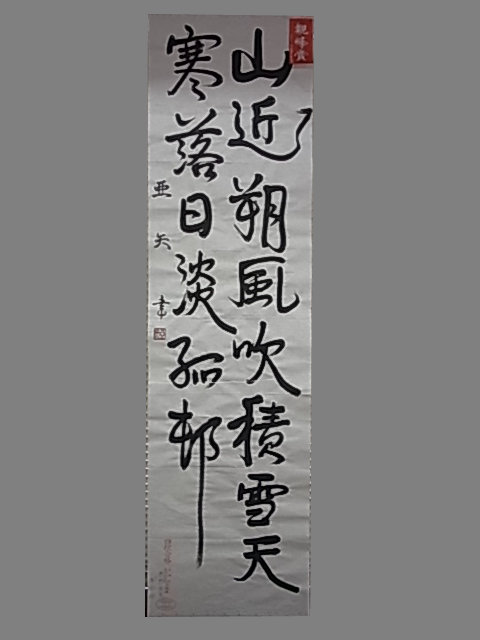 山近朔風吹積雪天
寒落日淡孤邨
亜矢書
観峰賞